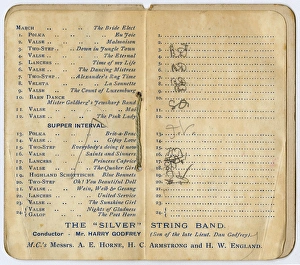 MARCH The Bride Elect
1. POLKA En Joie
2. VALSE Malnonisen
3. TWO-STEP Down in Jungle Town
4. VALSE The Eternal
5. LANCERS Time of my Life
6. VALSE The Dancing Mistress
7. TWO-STEP Alexander's Rag Time
8. VELETA La Sonnette
9. VALSE The Count of Luxemburg
10. BARN DANCE
Mister Goldberg's Jewsharp Band
11. VALSE Mai
12. VALSE The Pink Lady
SUPPER INTERVAL
13. POLKA Bric-a-Brac
14. VALSE Gipsy Love
15. TWO-STEP Everybody's doing it now
16. VALSE Saints and Sinners
17. LANCERS Princess Caprice
18. VALSE The Quaker Girl
19. HIGHLAND SCHOTTISCHE Blue Bonnets
20. TWO-STEP Oh! You Beautiful Doll
21. VALSE Wein, Weib & Gesang
22. LANCERS United Service
23. VALSE The Sunshine Girl
VALSE Nights of Gladness
24. GALOP The Post Horn
1.
2.
3.
4.
5.
6.
7.
8.
9.
10.
11.
12.
13.
14.
15.
16.
17.
18.
19.
20.
21.
22.
23.
24.
THE "SILVER" STRING BAND.
Conductor - Mr. HARRY GODFREY (Son of the late Lieut. Dan Godfrey).
M.C.'s Messrs. A. E. HORNE, H. C. ARMSTRONG and H. W. ENGLAND.